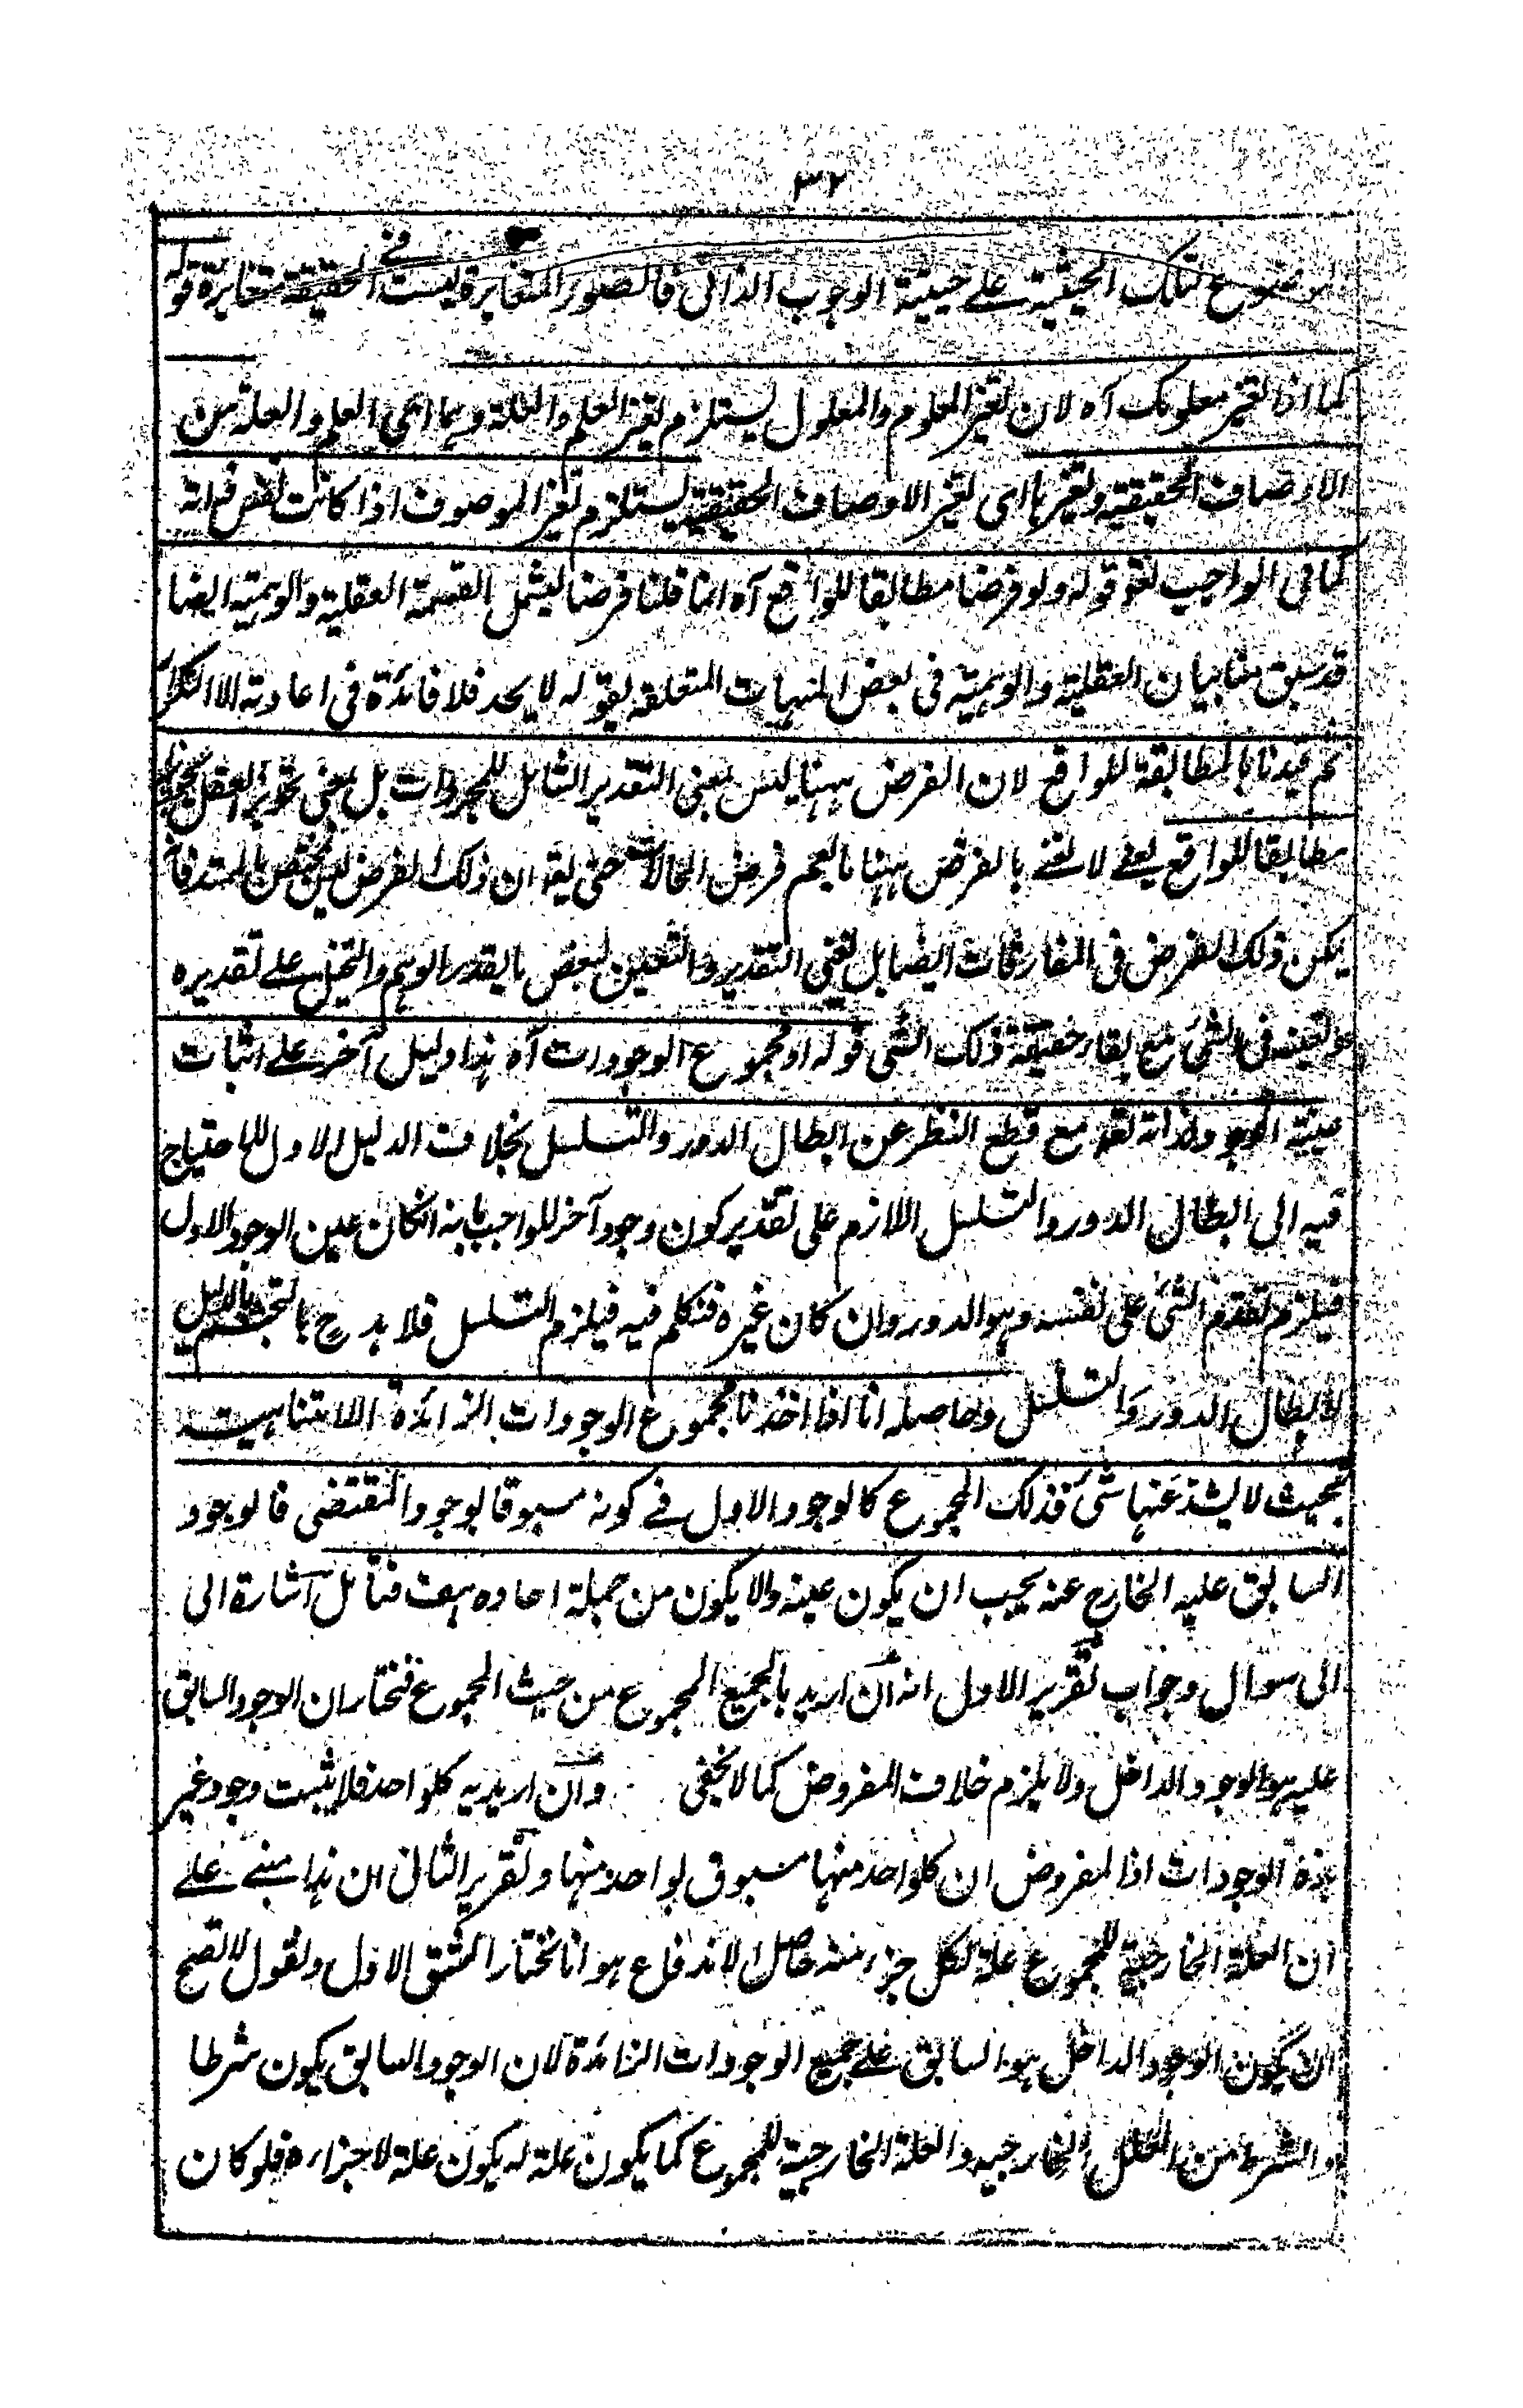 ٣٢
لتلك الحيثية على حيثية الوجوب الذاتى فالصور المتغايرة ليست فى الحقيقة متغايرة قوله
كما اذا تغير معلومك آه لان تغير المعلوم والمعلول يستلزم تغير العلم والعلة وهما اى العلم والعلة من
الاوصاف الحقيقية وتغيرها اى تغير الاوصاف الحقيقية يستلزم تغير الموصوف اذا كانت نفس ذاته
كما فى الواجب تعو قوله ولو فرضا مطابقا للواقع آه انما قلنا فرضا ليشمل القسمة العقلية والوهمية ايضا
قد سبق منا بيان العقلية والوهمية فى بعض المنهيات المتعلقة بقوله لا يحد فلا فائدة فى اعادته الا التكرار
ثم قيدنا بالمطابقة للواقع لان الفرض ههنا ليس بمعنى التقدير الشامل للمجردات بل بمعنى تجويز العقل
مطابقا للواقع يعنى لا نعنى بالفرض ههنا ما يعم فرض المحالات حتى يقه ان ذلك الفرض ليس بمختص
يمكن ذلك الفرض فى المفارقات ايضا بل نعنى التقدير والتعيين لبعض ما يقدر الوهم والتخيل على تقديره
وتعينه فى الشئ مع بقاء حقيقة ذلك الشئ قوله او مجموع الوجودات آه هذا دليل آخر على اثبات
عينية الوجود لذاته تعه مع قطع النظر عن ابطال الدور والتسلسل بخلاف الدليل الاول للاحتياج
فيه الى ابطال الدور والتسلسل اللازم على تقدير كون وجود آخر للواجب بانه انكان عين الوجود الاول
فيلزم تقدم الشئ على نفسه وهو الدور وان كان غيره فنكلم فيه فيلزم التسلسل فلا بد ح بالتجشم بالدليل
لابطال الدور والتسلسل وحاصله انا اذا اخذنا مجموع الوجودات الزائدة اللامتناهية
بحيث لا يشذ عنها شئ فذلك المجموع كالوجود الاول فى كونه مسبوقا بوجود المقتضى فالوجود
السابق عليه الخارج عنه يجب ان يكون عينه والا يكون من جملة احاده هف فتأمل اشارة الى
الى سوال وجواب تقرير الاول انه ان اريد بالجميع المجموع من حيث المجموع فنختار ان الوجود السابق
عليه هو الوجود الداخل ولا يلزم خلاف المفروض كما لا يخفى وان اريد به كلواحد فلا يثبت وجود غير
هذه الوجودات اذا المفروض ان كلواحد منها مسبوق بواحد منها وتقرير الثانى ان هذا مبنى على
ان العلة الخارجية للمجموع علة لكل جزء منه حاصل الاندفاع هو انا نختار الشق الاول ونقول لا تصح
ان يكون الوجود الداخل هو السابق على جميع الوجودات الزائدة لان الوجود السابق يكون شرطا
والشرط من العلل الخارجيه والعلة الخارجية للمجموع كما يكون علة له يكون علة لاجزاءه فلو كان